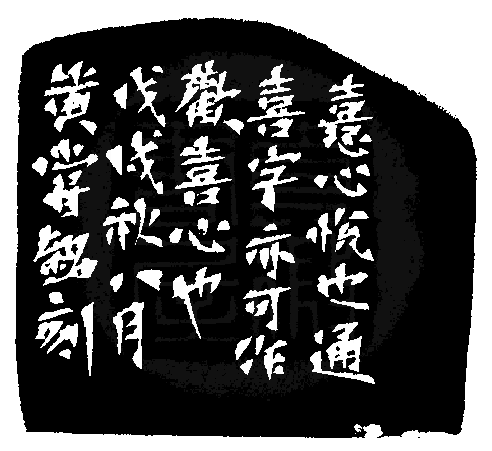 憙心悅也通
喜字亦可作
歡喜心也
戊戌秋八月
黃嘗銘刻